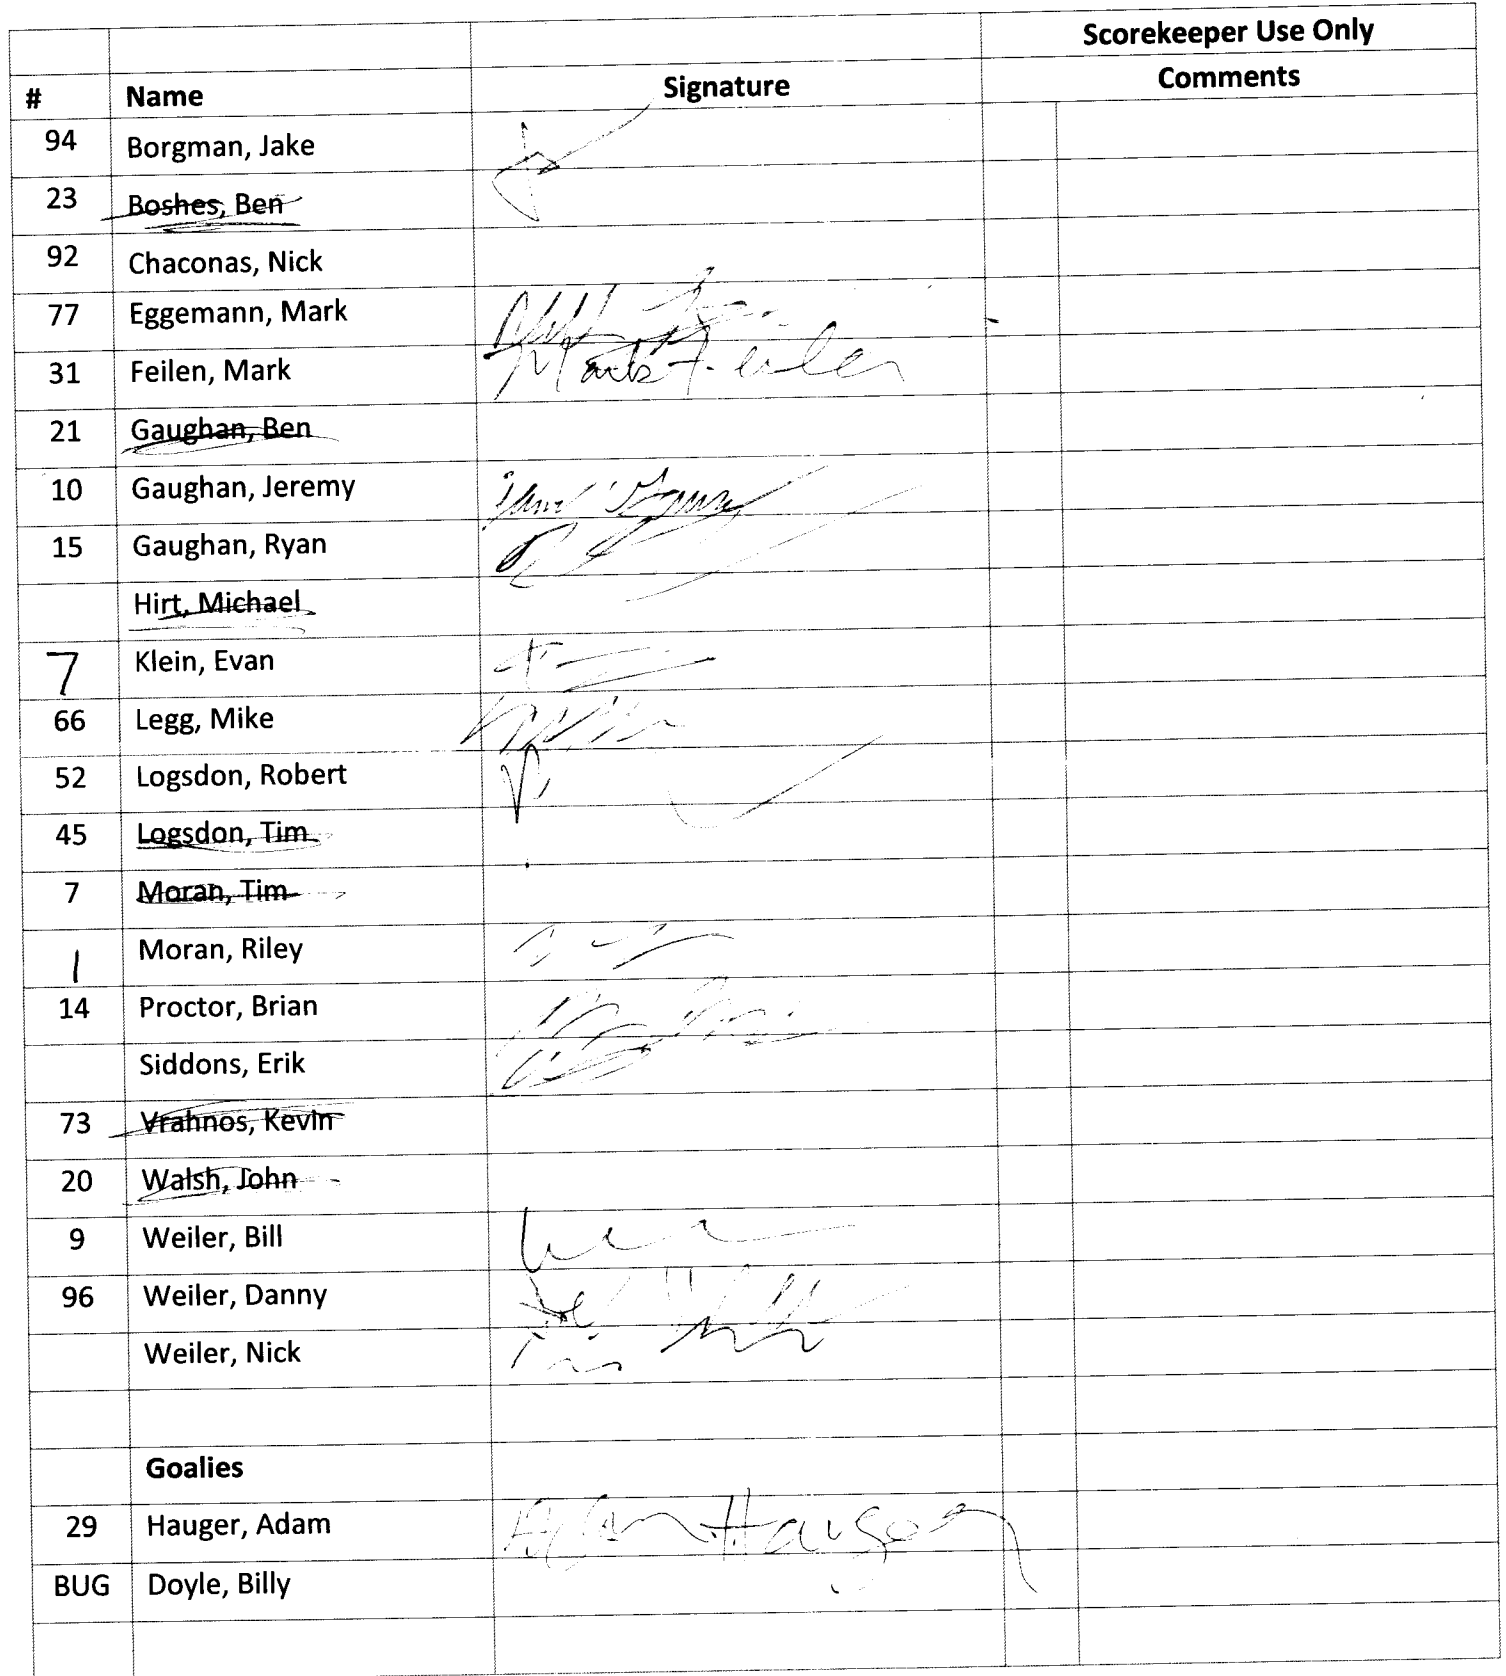 Scorekeeper Use Only
# Name Signature Comments
94 Borgman, Jake
23 Boshes, Ben
92 Chaconas, Nick
77 Eggemann, Mark
31 Feilen, Mark Mark Feilen
21 Gaughan, Ben
10 Gaughan, Jeremy
15 Gaughan, Ryan
Hirt, Michael
7 Klein, Evan
66 Legg, Mike
52 Logsdon, Robert
45 Logsdon, Tim
7 Moran, Tim
1 Moran, Riley
14 Proctor, Brian
Siddons, Erik
73 Vrahnos, Kevin
20 Walsh, John
9 Weiler, Bill
96 Weiler, Danny
Weiler, Nick
Goalies
29 Hauger, Adam Adam Hauger
BUG Doyle, Billy